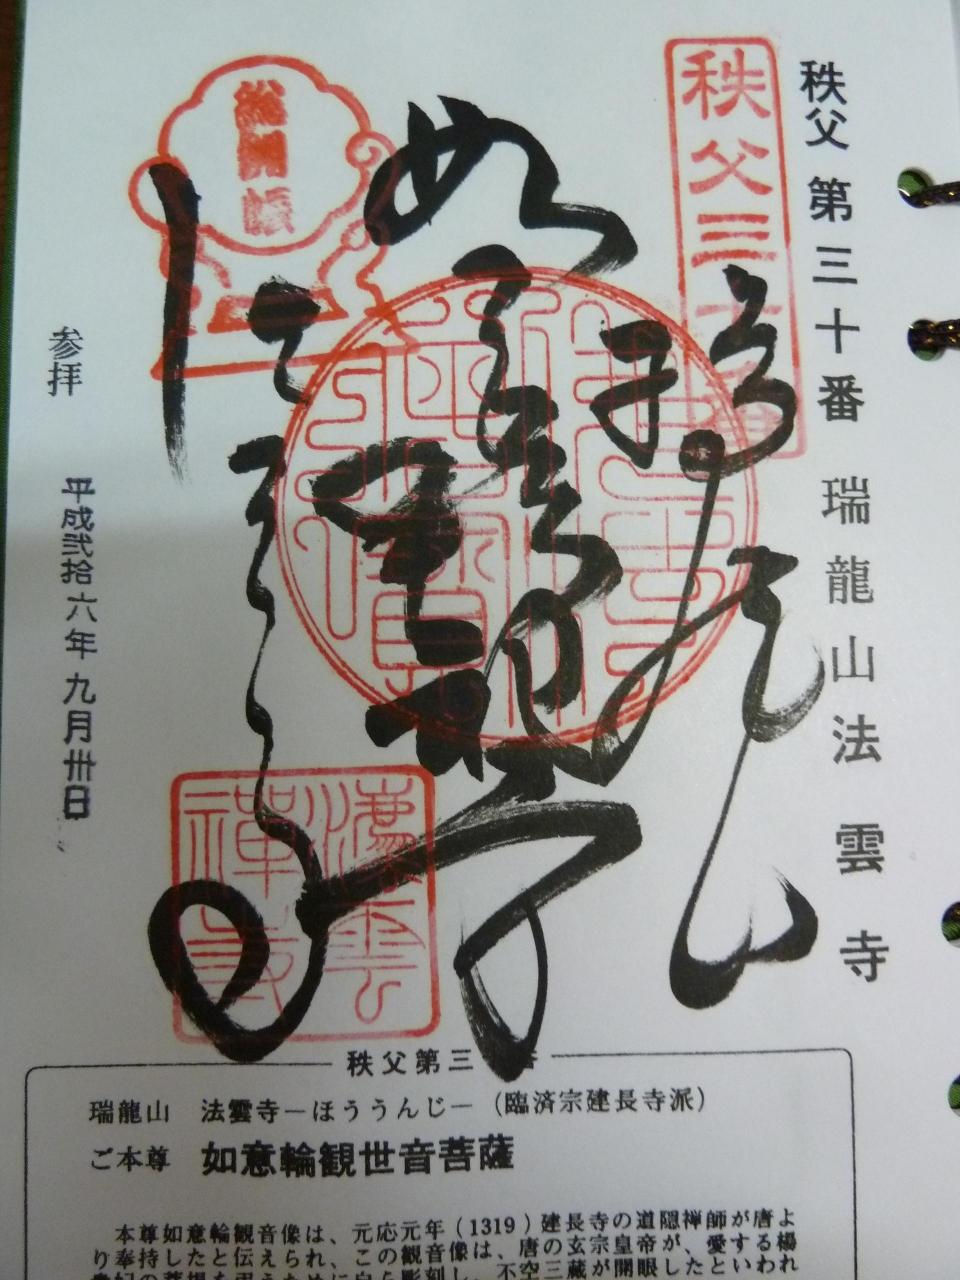 秩父第三十番 瑞龍山法雲寺
秩父三十番
瑞龍山
如意輪観世音
法雲寺
総開帳
参拝 平成弐拾六年九月卅日
秩父第三
瑞龍山 法雲寺―ほううんじ―(臨済宗建長寺派)
ご本尊 如意輪観世音菩薩
本尊如意輪観音像は、元応元年(1319)建長寺の道隠禅師が唐よ
り奉持したと伝えられ、この観音像は、唐の玄宗皇帝が、愛する楊
貴妃の菩提を弔うために自ら彫刻し、不空三蔵が開眼したといわれ